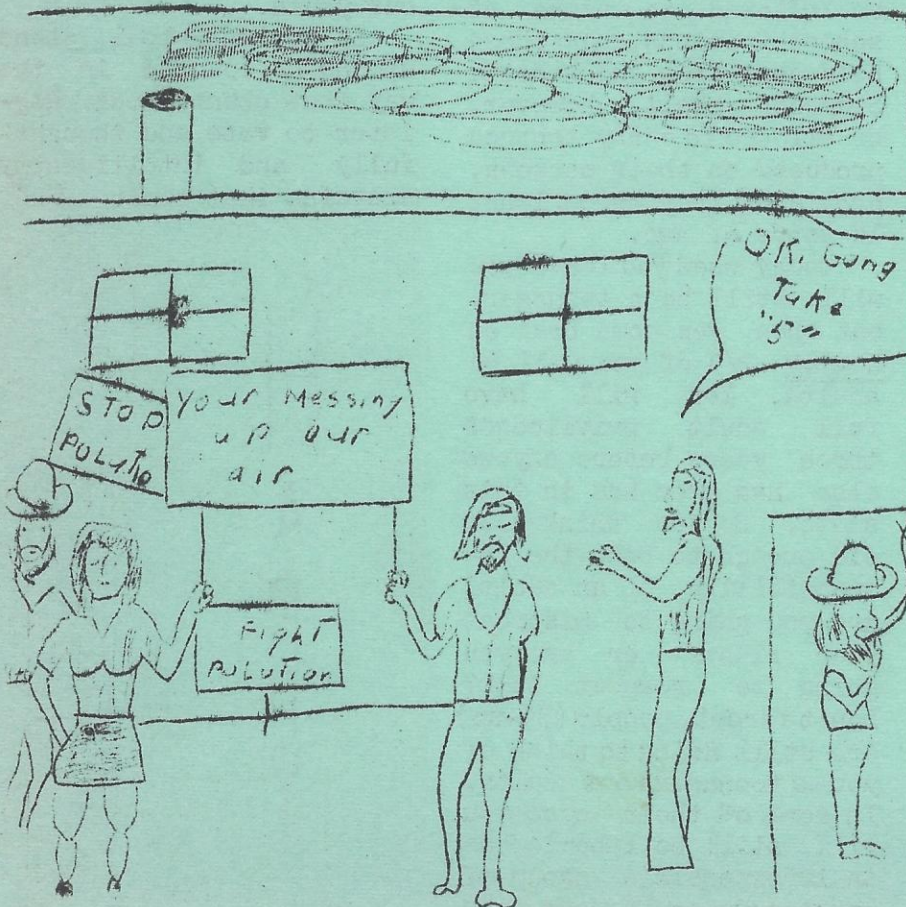 O.K. Gang
Take
"5"
STOP
POLUTIO
Your Messing
up our
air
Fight
POLUTION